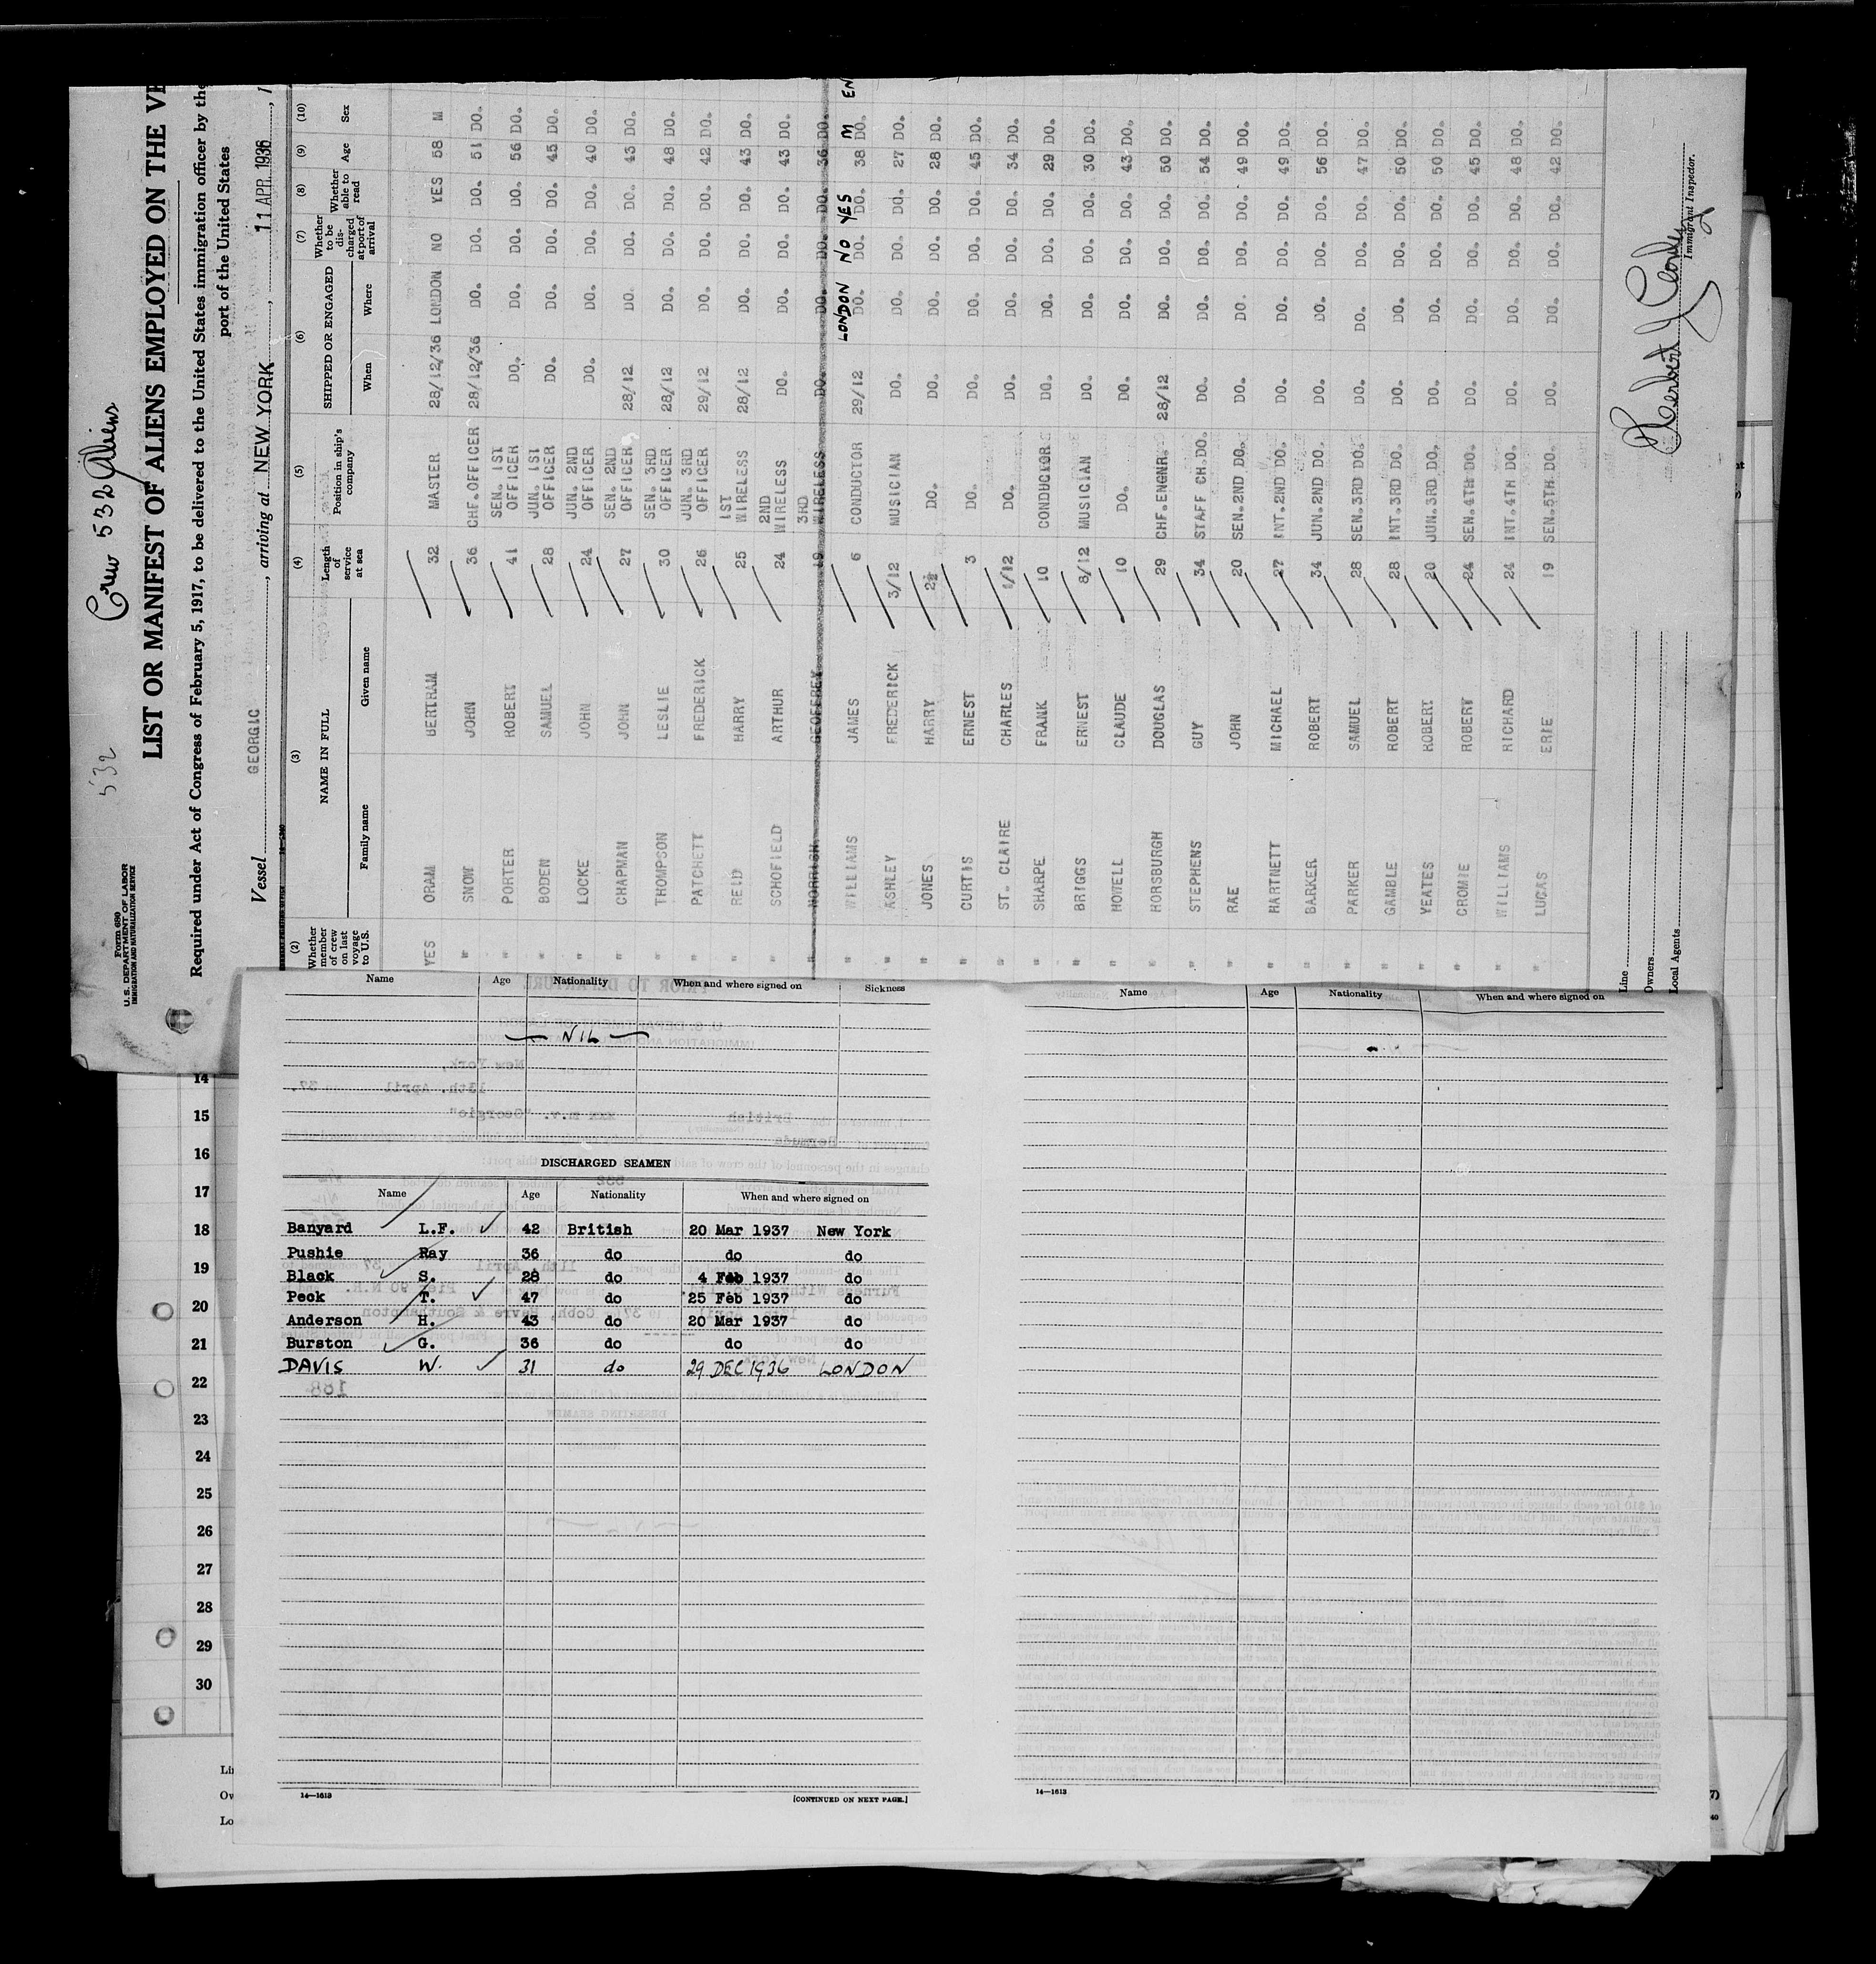 Form 680
U. S. DEPARTMENT OF LABOR
IMMIGRATION AND NATURALIZATION SERVICE
532
Crew 532 Aliens
LIST OR MANIFEST OF ALIENS EMPLOYED ON THE VE
Required under Act of Congress of February 5, 1917, to be delivered to the United States immigration officer by the
port of the United States
Vessel GEORGIC, arriving at NEW YORK, 11 APR 1936, 1
(2) (3) (4) (5) (6) (7) (8) (9) (10)
Whether member of crew on last voyage to U.S. NAME IN FULL Family name Given name Length of service at sea Position in ship's company SHIPPED OR ENGAGED When Where Whether to be discharged at port of arrival Whether able to read Age Sex
YES ORAM BERTRAM 32 MASTER 28/12/36 LONDON NO YES 58 M
" SNOW JOHN 36 CHF.OFFICER 28/12/36 DO. DO. DO. 51 DO.
" PORTER ROBERT 41 SEN. 1ST OFFICER DO. DO. DO. DO. 56 DO.
" BODEN SAMUEL 28 JUN. 1ST OFFICER DO. DO. DO. DO. 45 DO.
" LOCKE JOHN 24 JUN. 2ND OFFICER DO. DO. DO. DO. 40 DO.
" CHAPMAN JOHN 27 SEN. 2ND OFFICER 28/12 DO. DO. DO. 43 DO.
" THOMPSON LESLIE 30 SEN. 3RD OFFICER 28/12 DO. DO. DO. 48 DO.
" PATCHETT FREDERICK 26 JUN. 3RD OFFICER 29/12 DO. DO. DO. 42 DO.
" REID HARRY 25 1ST WIRELESS 28/12 DO. DO. DO. 43 DO.
" SCHOFIELD ARTHUR 24 2ND WIRELESS DO. DO. DO. DO. 43 DO.
" NORRISH GEOFFREY 19 3RD WIRELESS DO. DO. DO. DO. 36 DO.
LONDON NO YES M EN
" WILLIAMS JAMES 6 CONDUCTOR 29/12 DO. DO. DO. 38 DO.
" ASHLEY FREDERICK 3/12 MUSICIAN DO. DO. DO. DO. 27 DO.
" JONES HARRY 2½ DO. DO. DO. DO. DO. 28 DO.
" CURTIS ERNEST 3 DO. DO. DO. DO. DO. 45 DO.
" ST. CLAIRE CHARLES 1/12 DO. DO. DO. DO. DO. 34 DO.
" SHARPE FRANK 10 CONDUCTOR DO. DO. DO. DO. 29 DO.
" BRIGGS ERNEST 8/12 MUSICIAN DO. DO. DO. DO. 30 DO.
" HOWELL CLAUDE 10 DO. DO. DO. DO. DO. 43 DO.
" HORSBURGH DOUGLAS 29 CHF.ENGNR. 28/12 DO. DO. DO. 50 DO.
" STEPHENS GUY 34 STAFF CH.DO. DO. DO. DO. DO. 54 DO.
" RAE JOHN 20 SEN.2ND DO. DO. DO. DO. DO. 49 DO.
" HARTNETT MICHAEL 27 INT.2ND DO. DO. DO. DO. DO. 49 DO.
" BARKER ROBERT 34 JUN.2ND DO. DO. DO. DO. DO. 56 DO.
" PARKER SAMUEL 28 SEN.3RD DO. DO. DO. DO. DO. 47 DO.
" GAMBLE ROBERT 28 INT.3RD DO. DO. DO. DO. DO. 50 DO.
" YEATES ROBERT 20 JUN.3RD DO. DO. DO. DO. DO. 50 DO.
" CROMIE ROBERT 24 SEN.4TH DO. DO. DO. DO. DO. 45 DO.
" WILLIAMS RICHARD 24 INT.4TH DO. DO. DO. DO. DO. 48 DO.
" LUCAS ERIE 19 SEN.5TH DO. DO. DO. DO. DO. 42 DO.
Line
Owners
Local Agents
Immigrant Inspector.
Name Age Nationality When and where signed on Sickness
NIL
DISCHARGED SEAMEN
Name Age Nationality When and where signed on
Banyard L.F. 42 British 20 Mar 1937 New York
Pushie Ray 36 do do do
Black S. 28 do 4 Feb 1937 do
Peck T. 47 do 25 Feb 1937 do
Anderson H. 43 do 20 Mar 1937 do
Burston G. 36 do do do
DAVIS W. 31 do 29 DEC 1936 LONDON
14—1613 [CONTINUED ON NEXT PAGE.]
Name Age Nationality When and where signed on
14—1613
14
15
16
17
18
19
20
21
22
23
24
25
26
27
28
29
30
Li
Ow
Lo